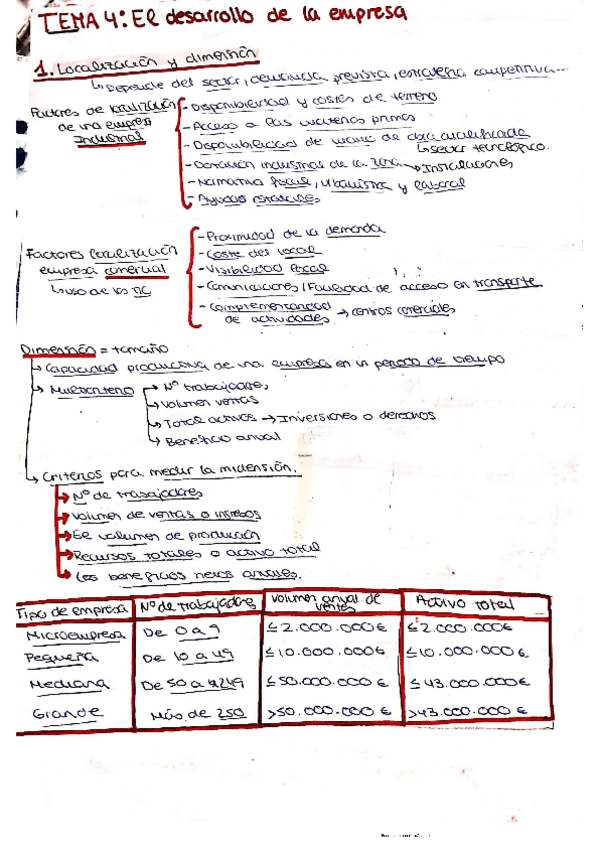 TEMA 4: El desarrollo de la empresa
1. Localización y dimensión
↳ Depende del sector, demanda prevista, estrategia competitiva...
Factores de localización
de una empresa
Industrial
- Disponibilidad y costes de terreno
- Acceso a las materias primas
- Disponibilidad de mano de obra cualificada
↳ sector tecnológico.
- Dotación industrias de la zona → Instalaciones
- Normativa fiscal, urbanística y laboral
- Ayudas estatales
Factores localización
empresa comercial
↳ uso de las TIC
- Proximidad de la demanda
- Coste del local
- Visibilidad local
- Comunicaciones / Facilidad de acceso en transporte
- Complementariedad
de actividades → centros comerciales
Dimensión = tamaño
→ Capacidad productiva de una empresa en un periodo de tiempo
→ Multicriterio → Nº trabajadores
→ Volumen ventas
→ Total activos → Inversiones o derechos
→ Beneficio anual
→ Criterios para medir la midensión.
→ Nº de trabajadores
→ Volumen de ventas o ingresos
→ El volumen de producción
→ Recursos totales o activo total
→ Los beneficios netos anuales.
Tipo de empresa | Nº de trabajadores | Volumen anual de ventas | Activo total
Microempresa | De 0 a 9 | ≤ 2.000.000€ | ≤ 2.000.000€
Pequeña | De 10 a 49 | ≤ 10.000.000€ | ≤ 10.000.000€
Mediana | De 50 a 249 | ≤ 50.000.000€ | ≤ 43.000.000€
Grande | Más de 250 | > 50.000.000€ | > 43.000.000€